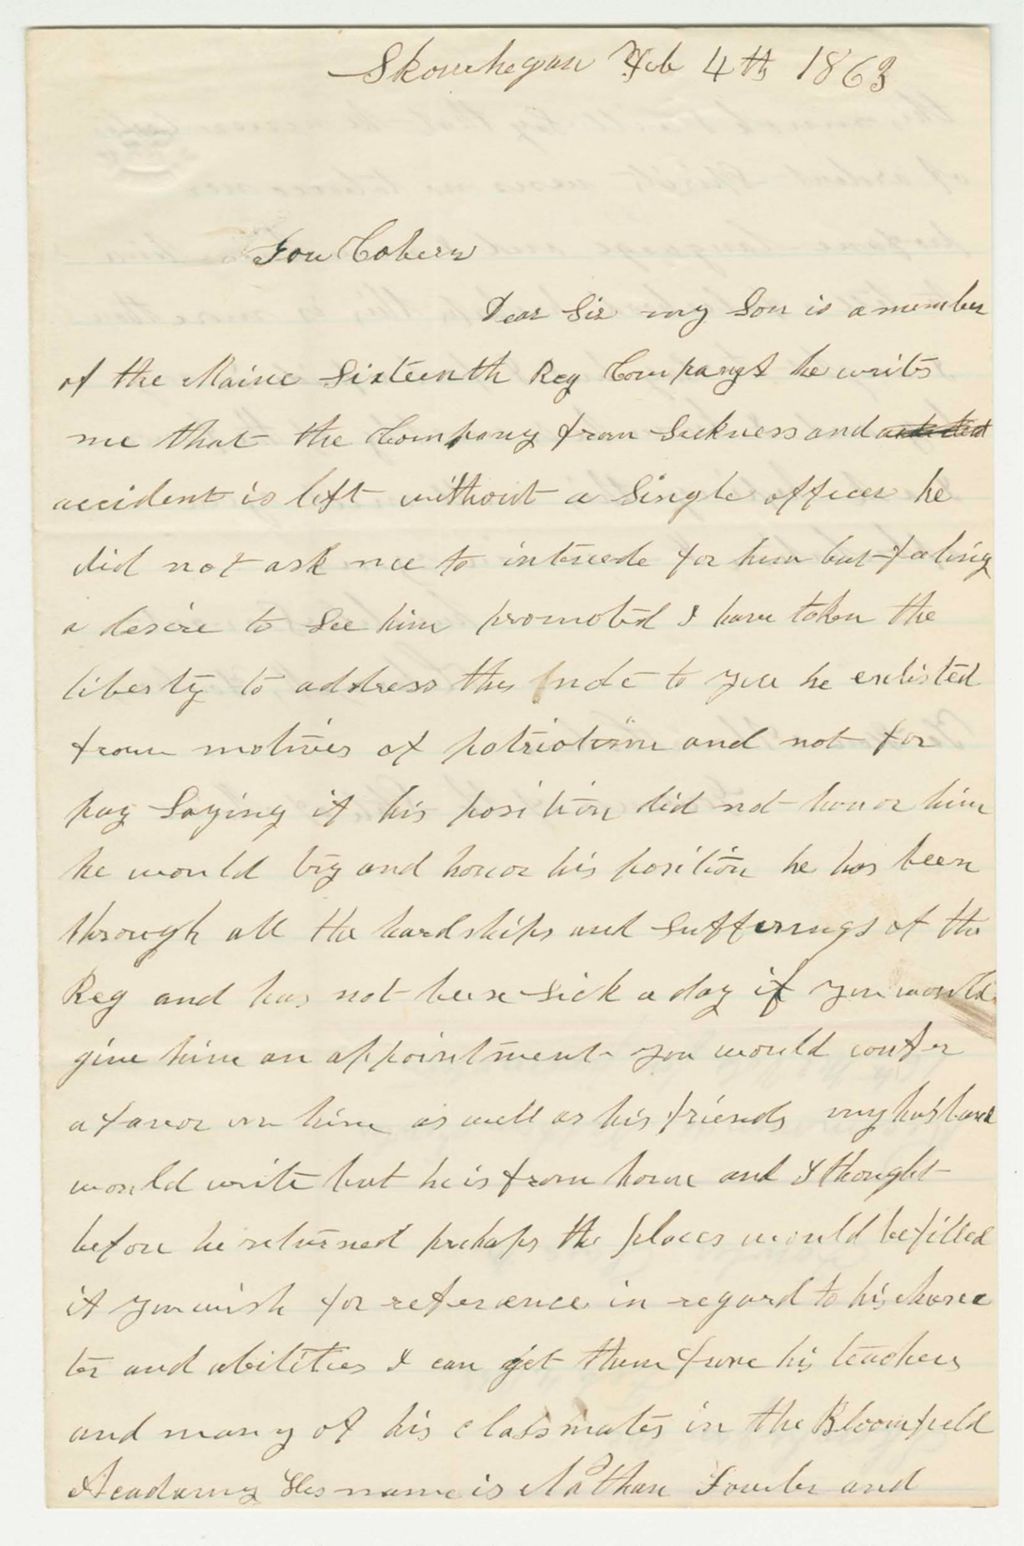 Skowhegan Feb 4th 1863
Gov Coburn
Dear Sir my Son is a member
of the Maine Sixteenth Reg Company he writes
me that the Company from Sickness and
accident is left without a Single officer he
did not ask me to intercede for him but feeling
a desire to See him promoted I have taken the
liberty to address this note to you he enlisted
from motives of patriotism and not for
pay Saying if his position did not honor him
he would try and honor his position he has been
through all the hardships and Sufferings of the
Reg and has not been Sick a day if you would
give him an appointment you would confer
a favor on him as well as his friends my husband
would write but he is from home and I thought
before he returned perhaps the places would be filled
if you wish for referance in regard to his charac
ter and abilities I can get them from his teachers
and many of his classmates in the Bloomfield
Academy His name is Nathan Fowler and